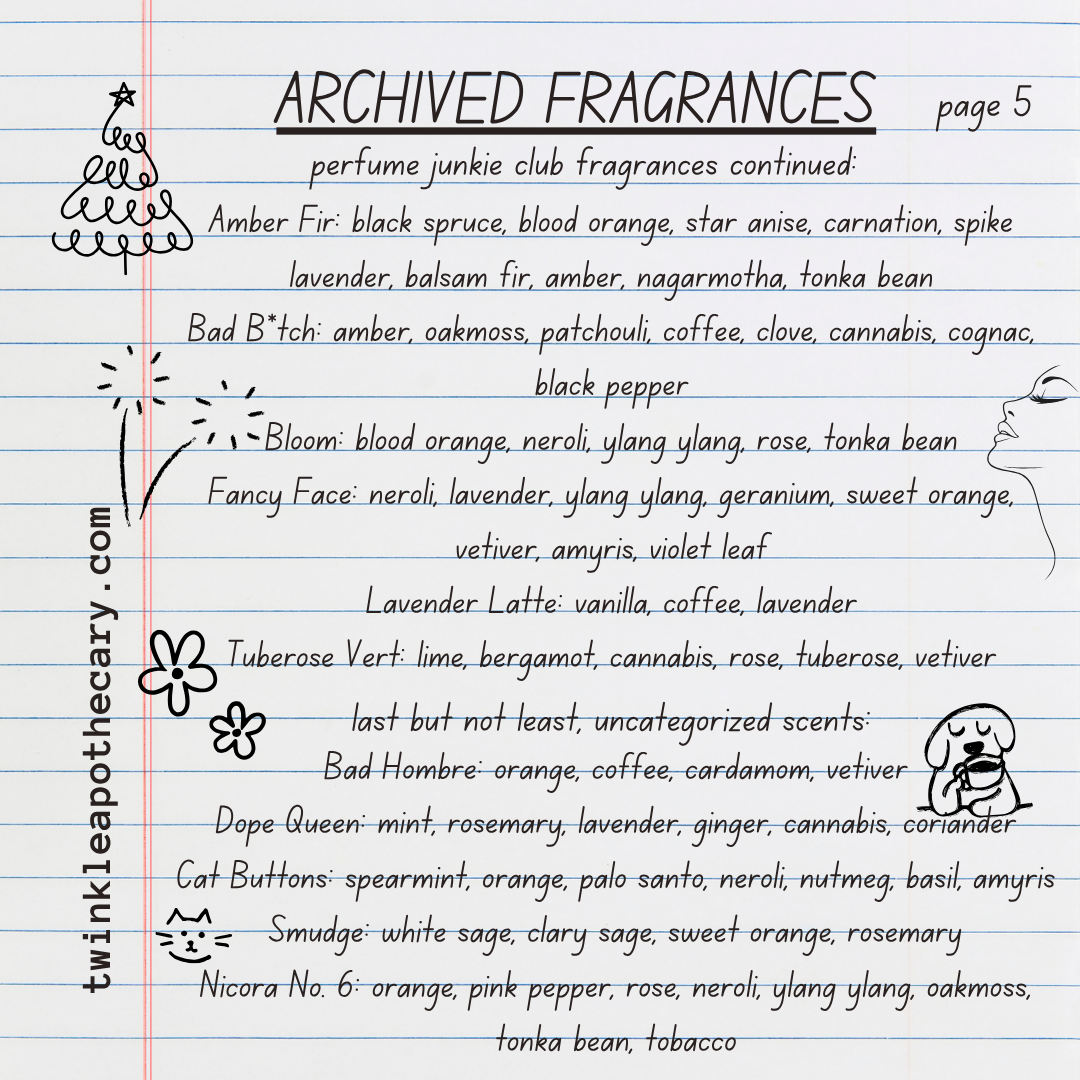 ARCHIVED FRAGRANCES
page 5
perfume junkie club fragrances continued:
Amber Fir: black spruce, blood orange, star anise, carnation, spike
lavender, balsam fir, amber, nagarmotha, tonka bean
Bad B*tch: amber, oakmoss, patchouli, coffee, clove, cannabis, cognac,
black pepper
Bloom: blood orange, neroli, ylang ylang, rose, tonka bean
Fancy Face: neroli, lavender, ylang ylang, geranium, sweet orange,
vetiver, amyris, violet leaf
Lavender Latte: vanilla, coffee, lavender
Tuberose Vert: lime, bergamot, cannabis, rose, tuberose, vetiver
last but not least, uncategorized scents:
Bad Hombre: orange, coffee, cardamom, vetiver
Dope Queen: mint, rosemary, lavender, ginger, cannabis, coriander
Cat Buttons: spearmint, orange, palo santo, neroli, nutmeg, basil, amyris
Smudge: white sage, clary sage, sweet orange, rosemary
Nicora No. 6: orange, pink pepper, rose, neroli, ylang ylang, oakmoss,
tonka bean, tobacco
twinkleapothecary.com